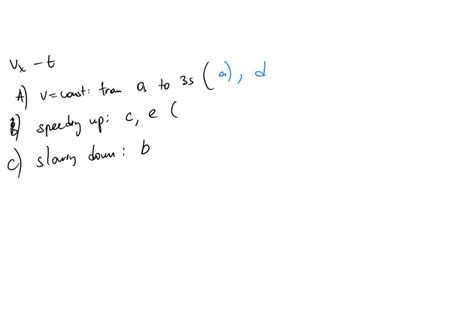 vx - t
A) v=const: from 0s to 3s (a), d
B) speeding up: c, e (
C) slowing down: b